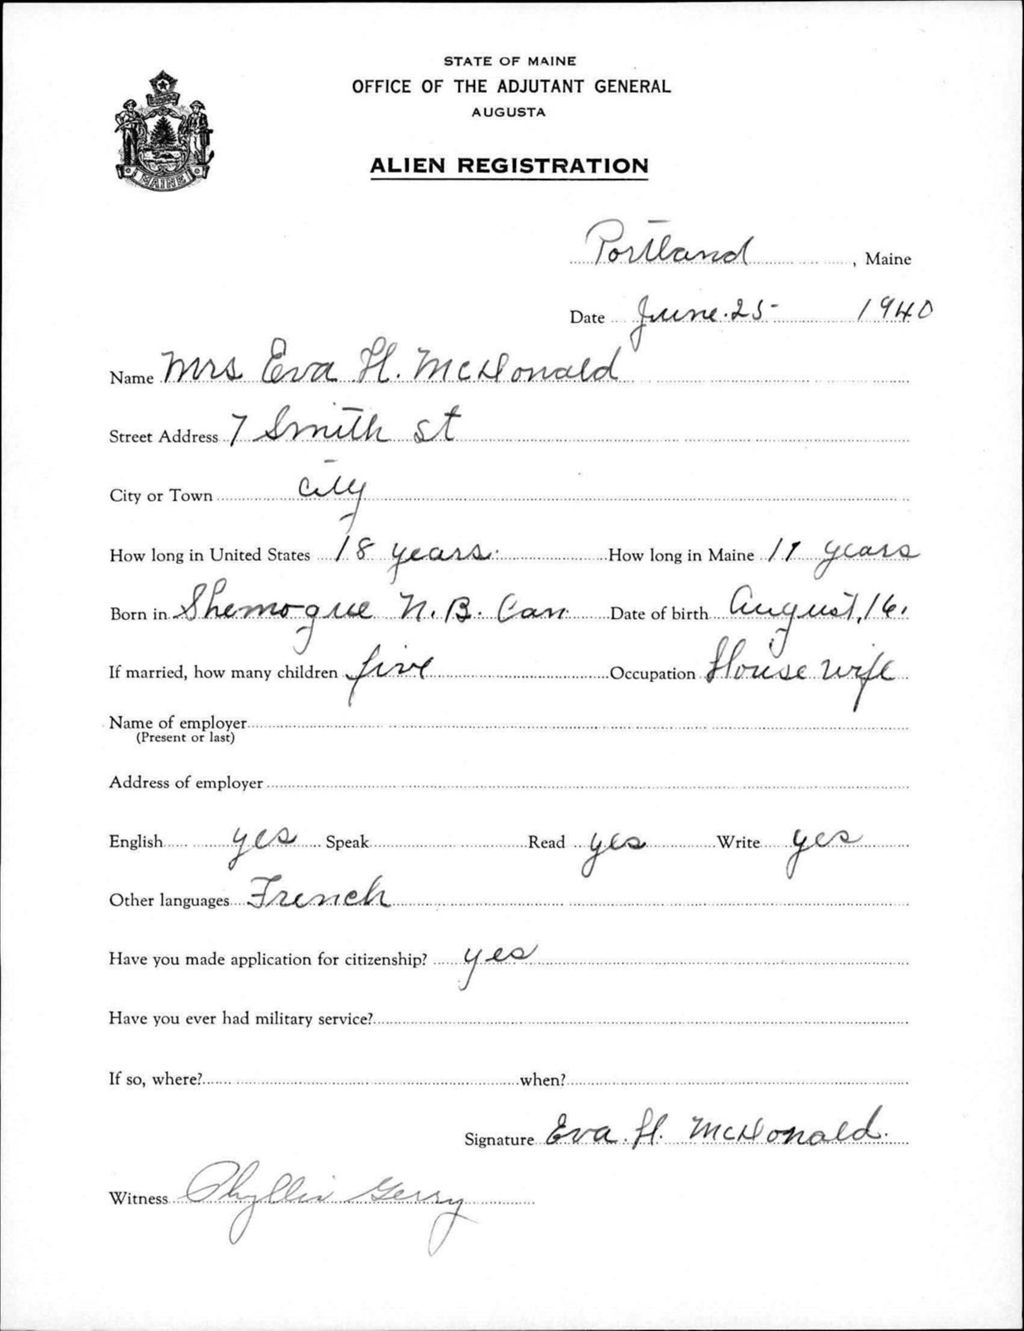 STATE OF MAINE
OFFICE OF THE ADJUTANT GENERAL
AUGUSTA
ALIEN REGISTRATION
MAINE
Portland, Maine
Date June 25 1940
Name Mrs Eva H. McDonald
Street Address 7 Smith st
City or Town City
How long in United States 18 years. How long in Maine 17 years
Born in Shemogue N.B. Can. Date of birth August, 16.
If married, how many children five Occupation House wife
Name of employer
(Present or last)
Address of employer
English yes Speak Read yes Write yes
Other languages French
Have you made application for citizenship? yes
Have you ever had military service?
If so, where? when?
Signature Eva. H. McDonald.
Witness Phyllis Gerry